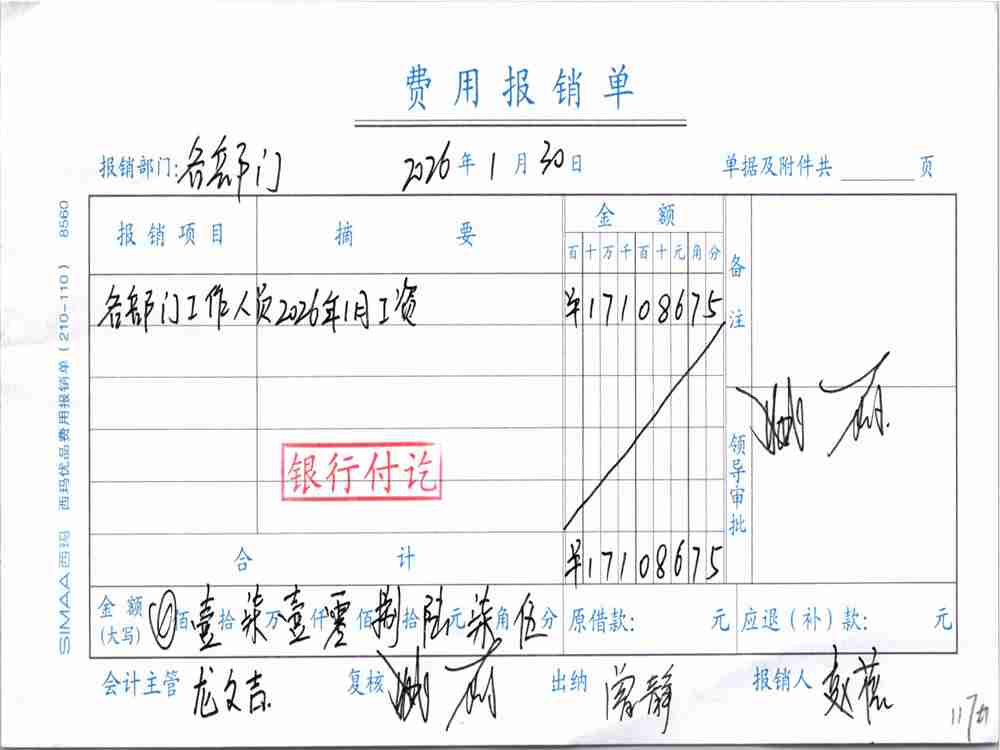 费用报销单
报销部门:各部门 2026年1月30日 单据及附件共 页
报销项目 摘要 金额 备注
百十万千百十元角分
各部门工作人员2026年1月工资 ¥17108675
领导审批
银行付讫
合计 ¥17108675
金额(大写) 佰壹拾柒万壹仟零佰捌拾陆元柒角伍分 原借款: 元 应退(补)款: 元
会计主管 龙文吉 复核 出纳 曾静 报销人 赵蓓
SIMAA西玛 西玛优品费用报销单(210-110) 8560